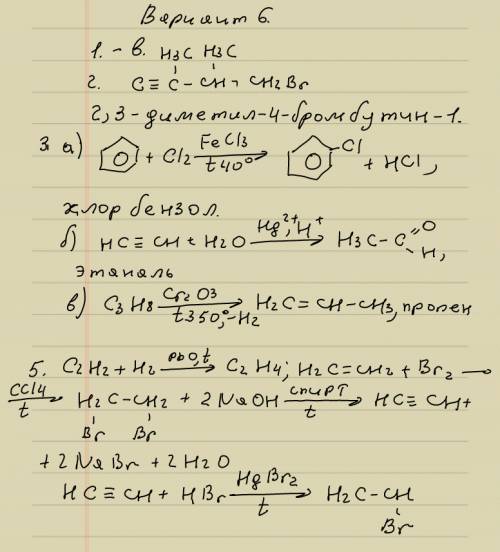 Вариант 6.
1. - в. H3C H3C
2. C≡C-CH-CH2Br
2,3-диметил-4-бромбутин-1.
3 а) + Cl2 FeCl3 t 40° Cl + HCl,
хлор бензол.
б) HC≡CH + H2O Hg²⁺, H⁺ → H3C-C=O H,
этаналь
в) C3H8 Cr2O3 t350°, -H2 → H2C=CH-CH3, пропен
5. C2H2 + H2 PbO, t → C2H4; H2C=CH2 + Br2 —
CCl4 t → H2C-CH2 + 2 NaOH спирт t → HC≡CH +
Br Br
+ 2 NaBr + 2 H2O
HC≡CH + HBr HgBr2 t → H2C-CH
Br